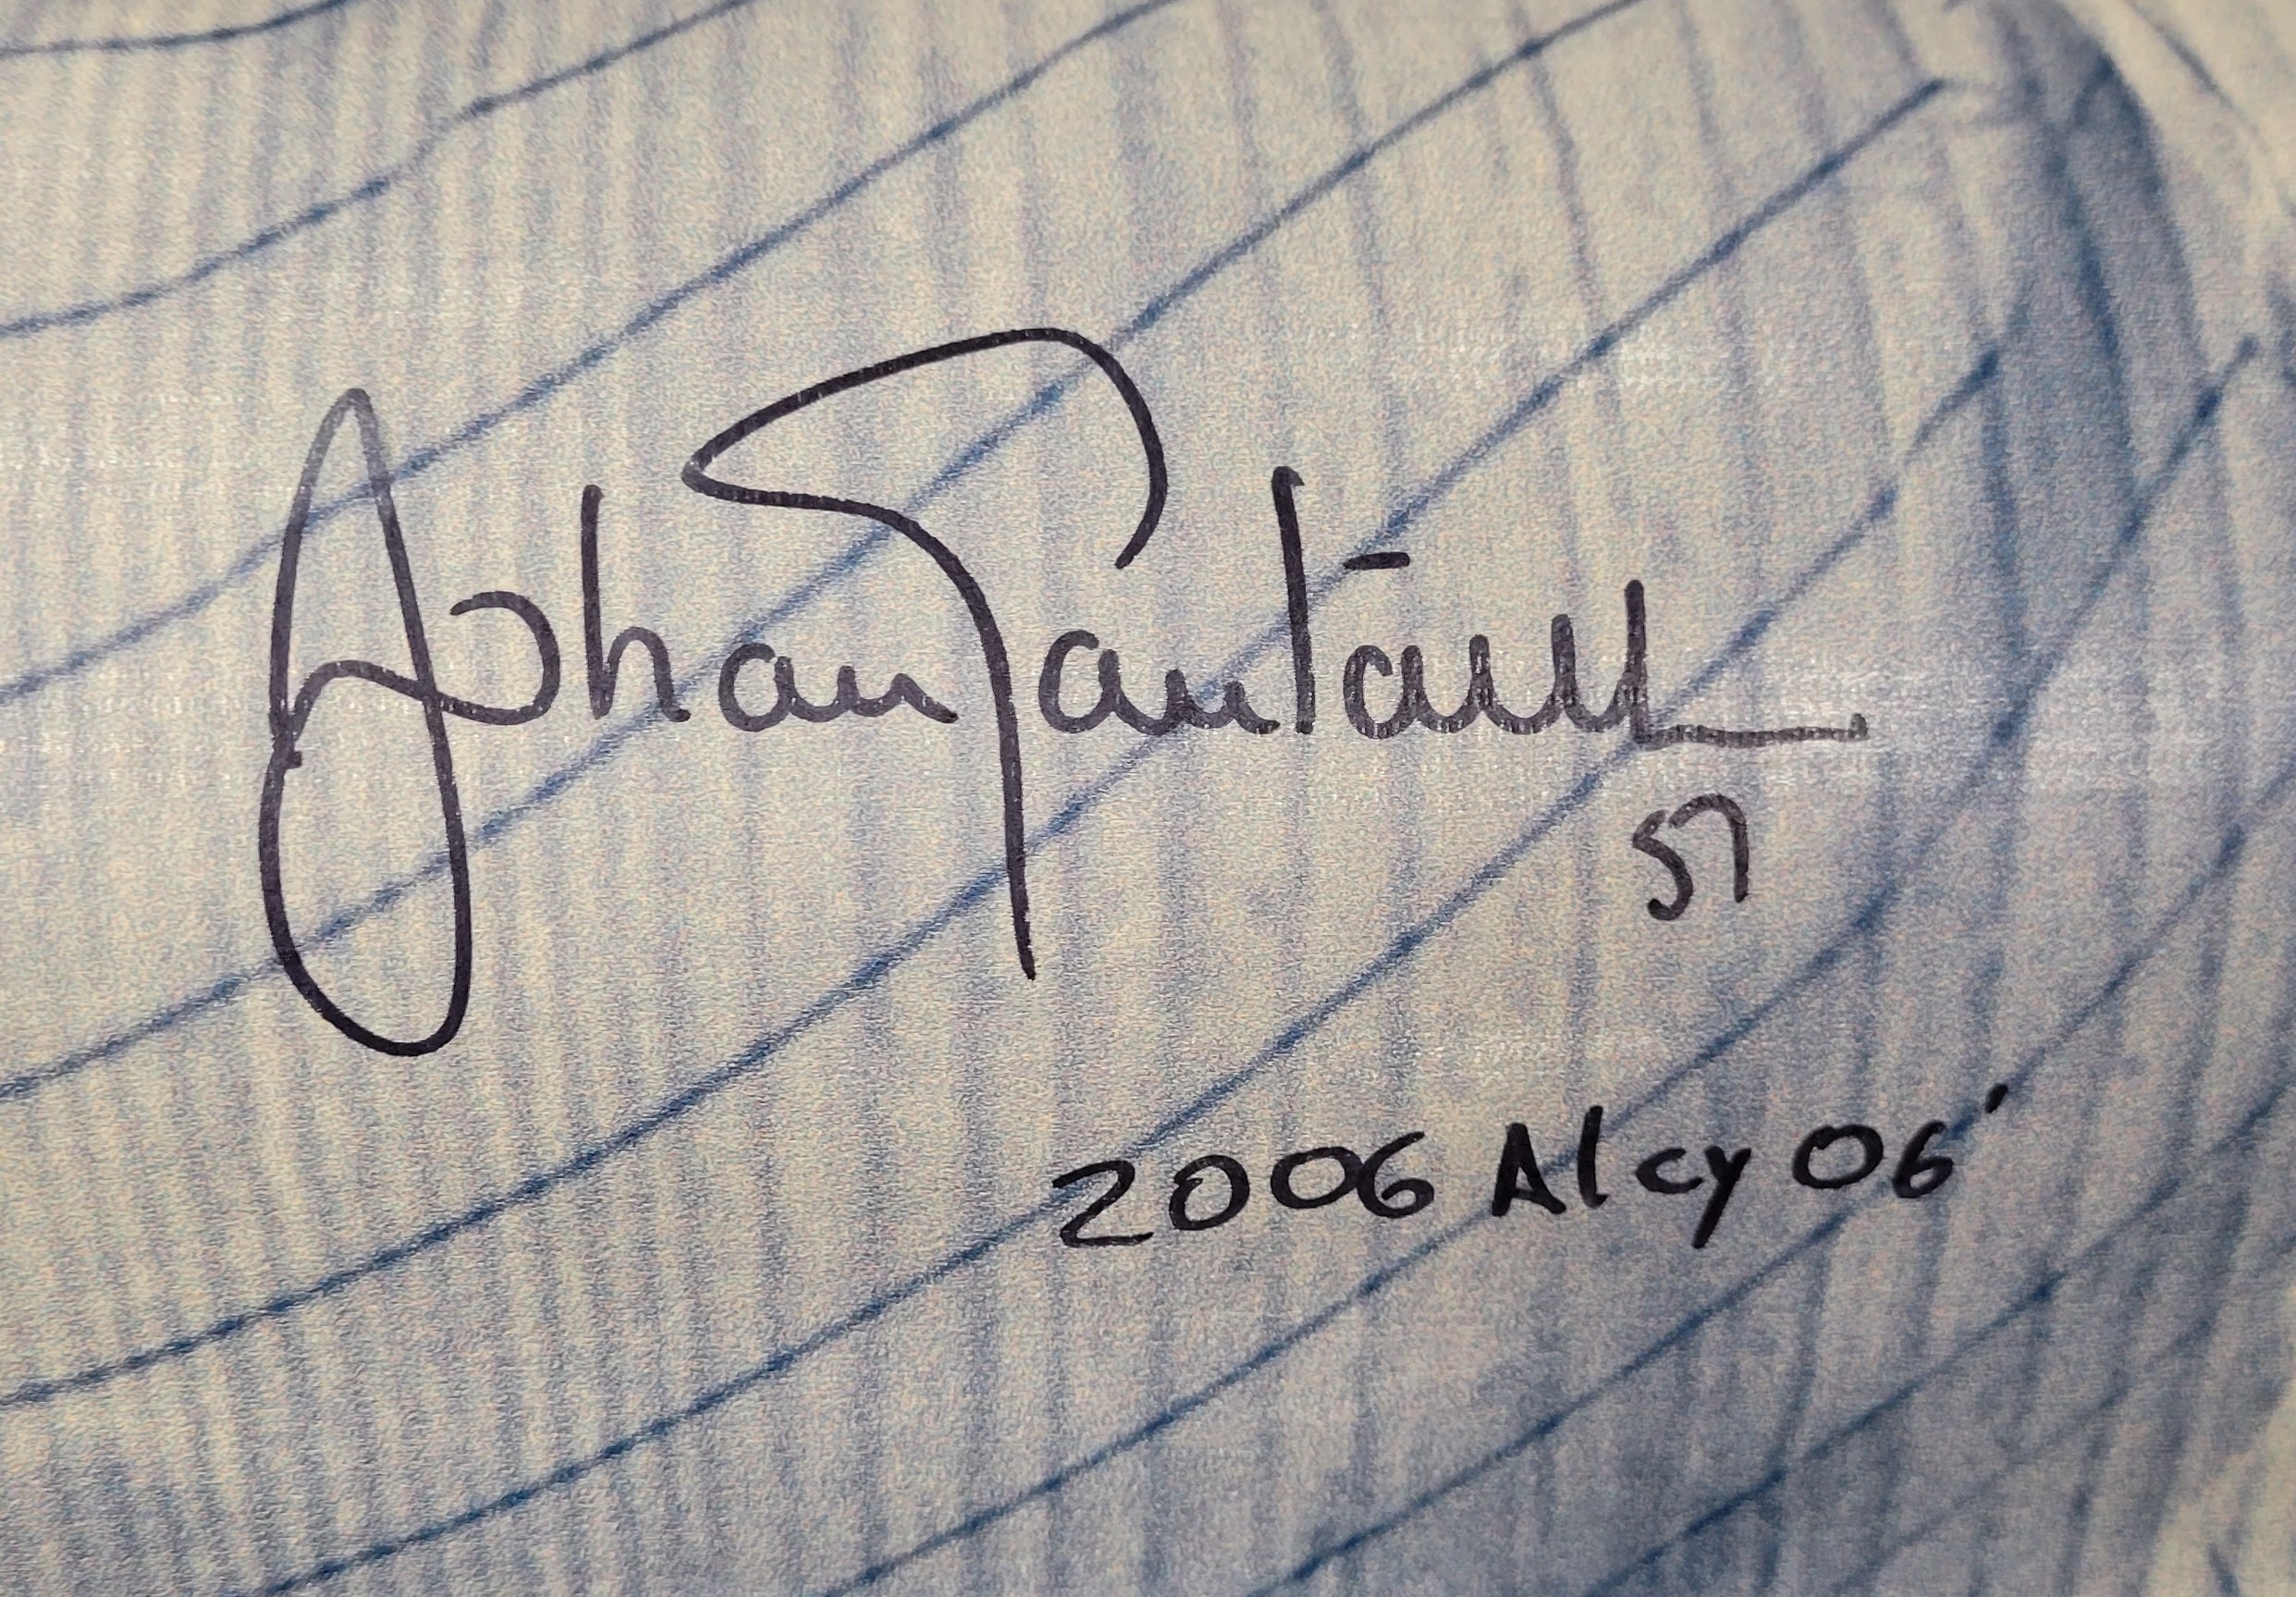 Johan Santana
57
2006 Al cy 06'